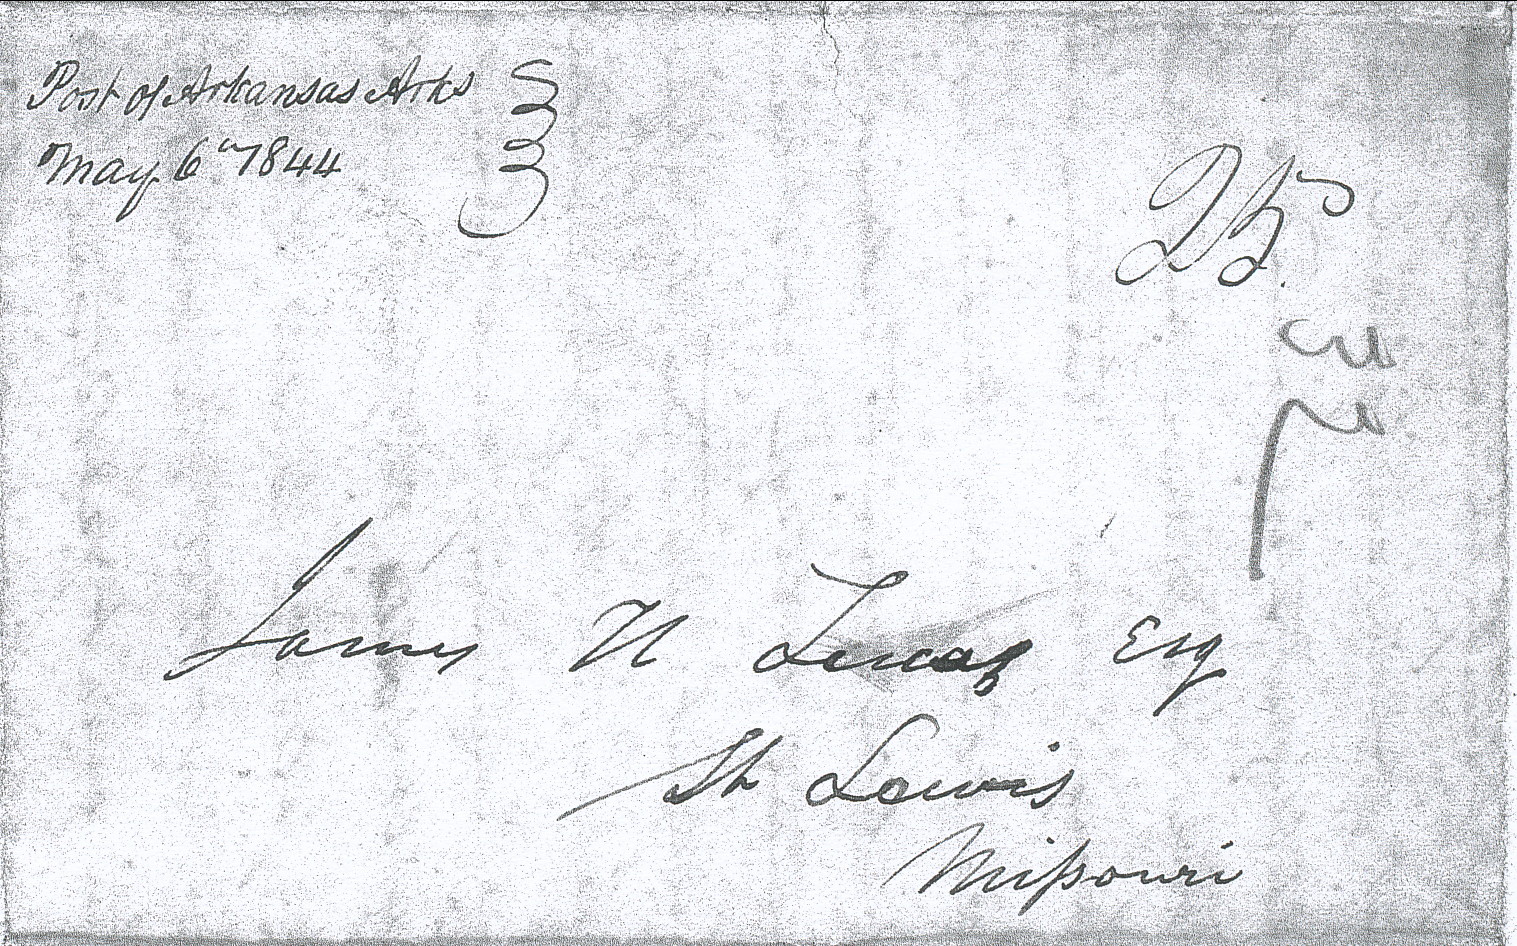 Post of Arkansas Arks
May 6th 1844
25.
James H Lucas Esq
St Louis
Mißouri